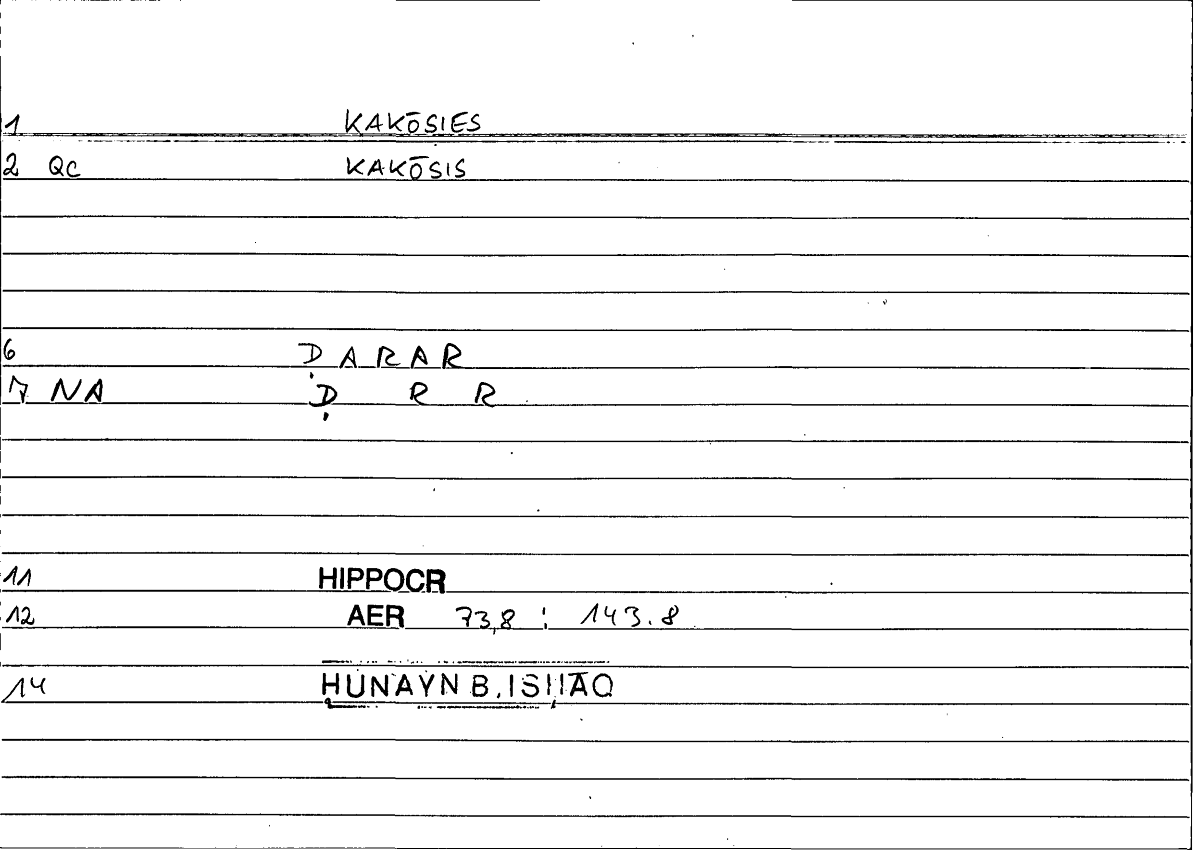 1 KAKŌSIES
2 QC KAKŌSIS
6 ḌARAR
7 NA Ḍ R R
11 HIPPOCR
12 AER 73,8 : 143.8
14 ḤUNAYN B. ISḤĀQ